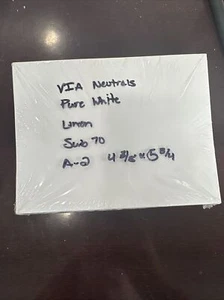 VIA Neutrals
Pure White
Linen
Sub 70
A-2 4 3/8 x 5 3/4